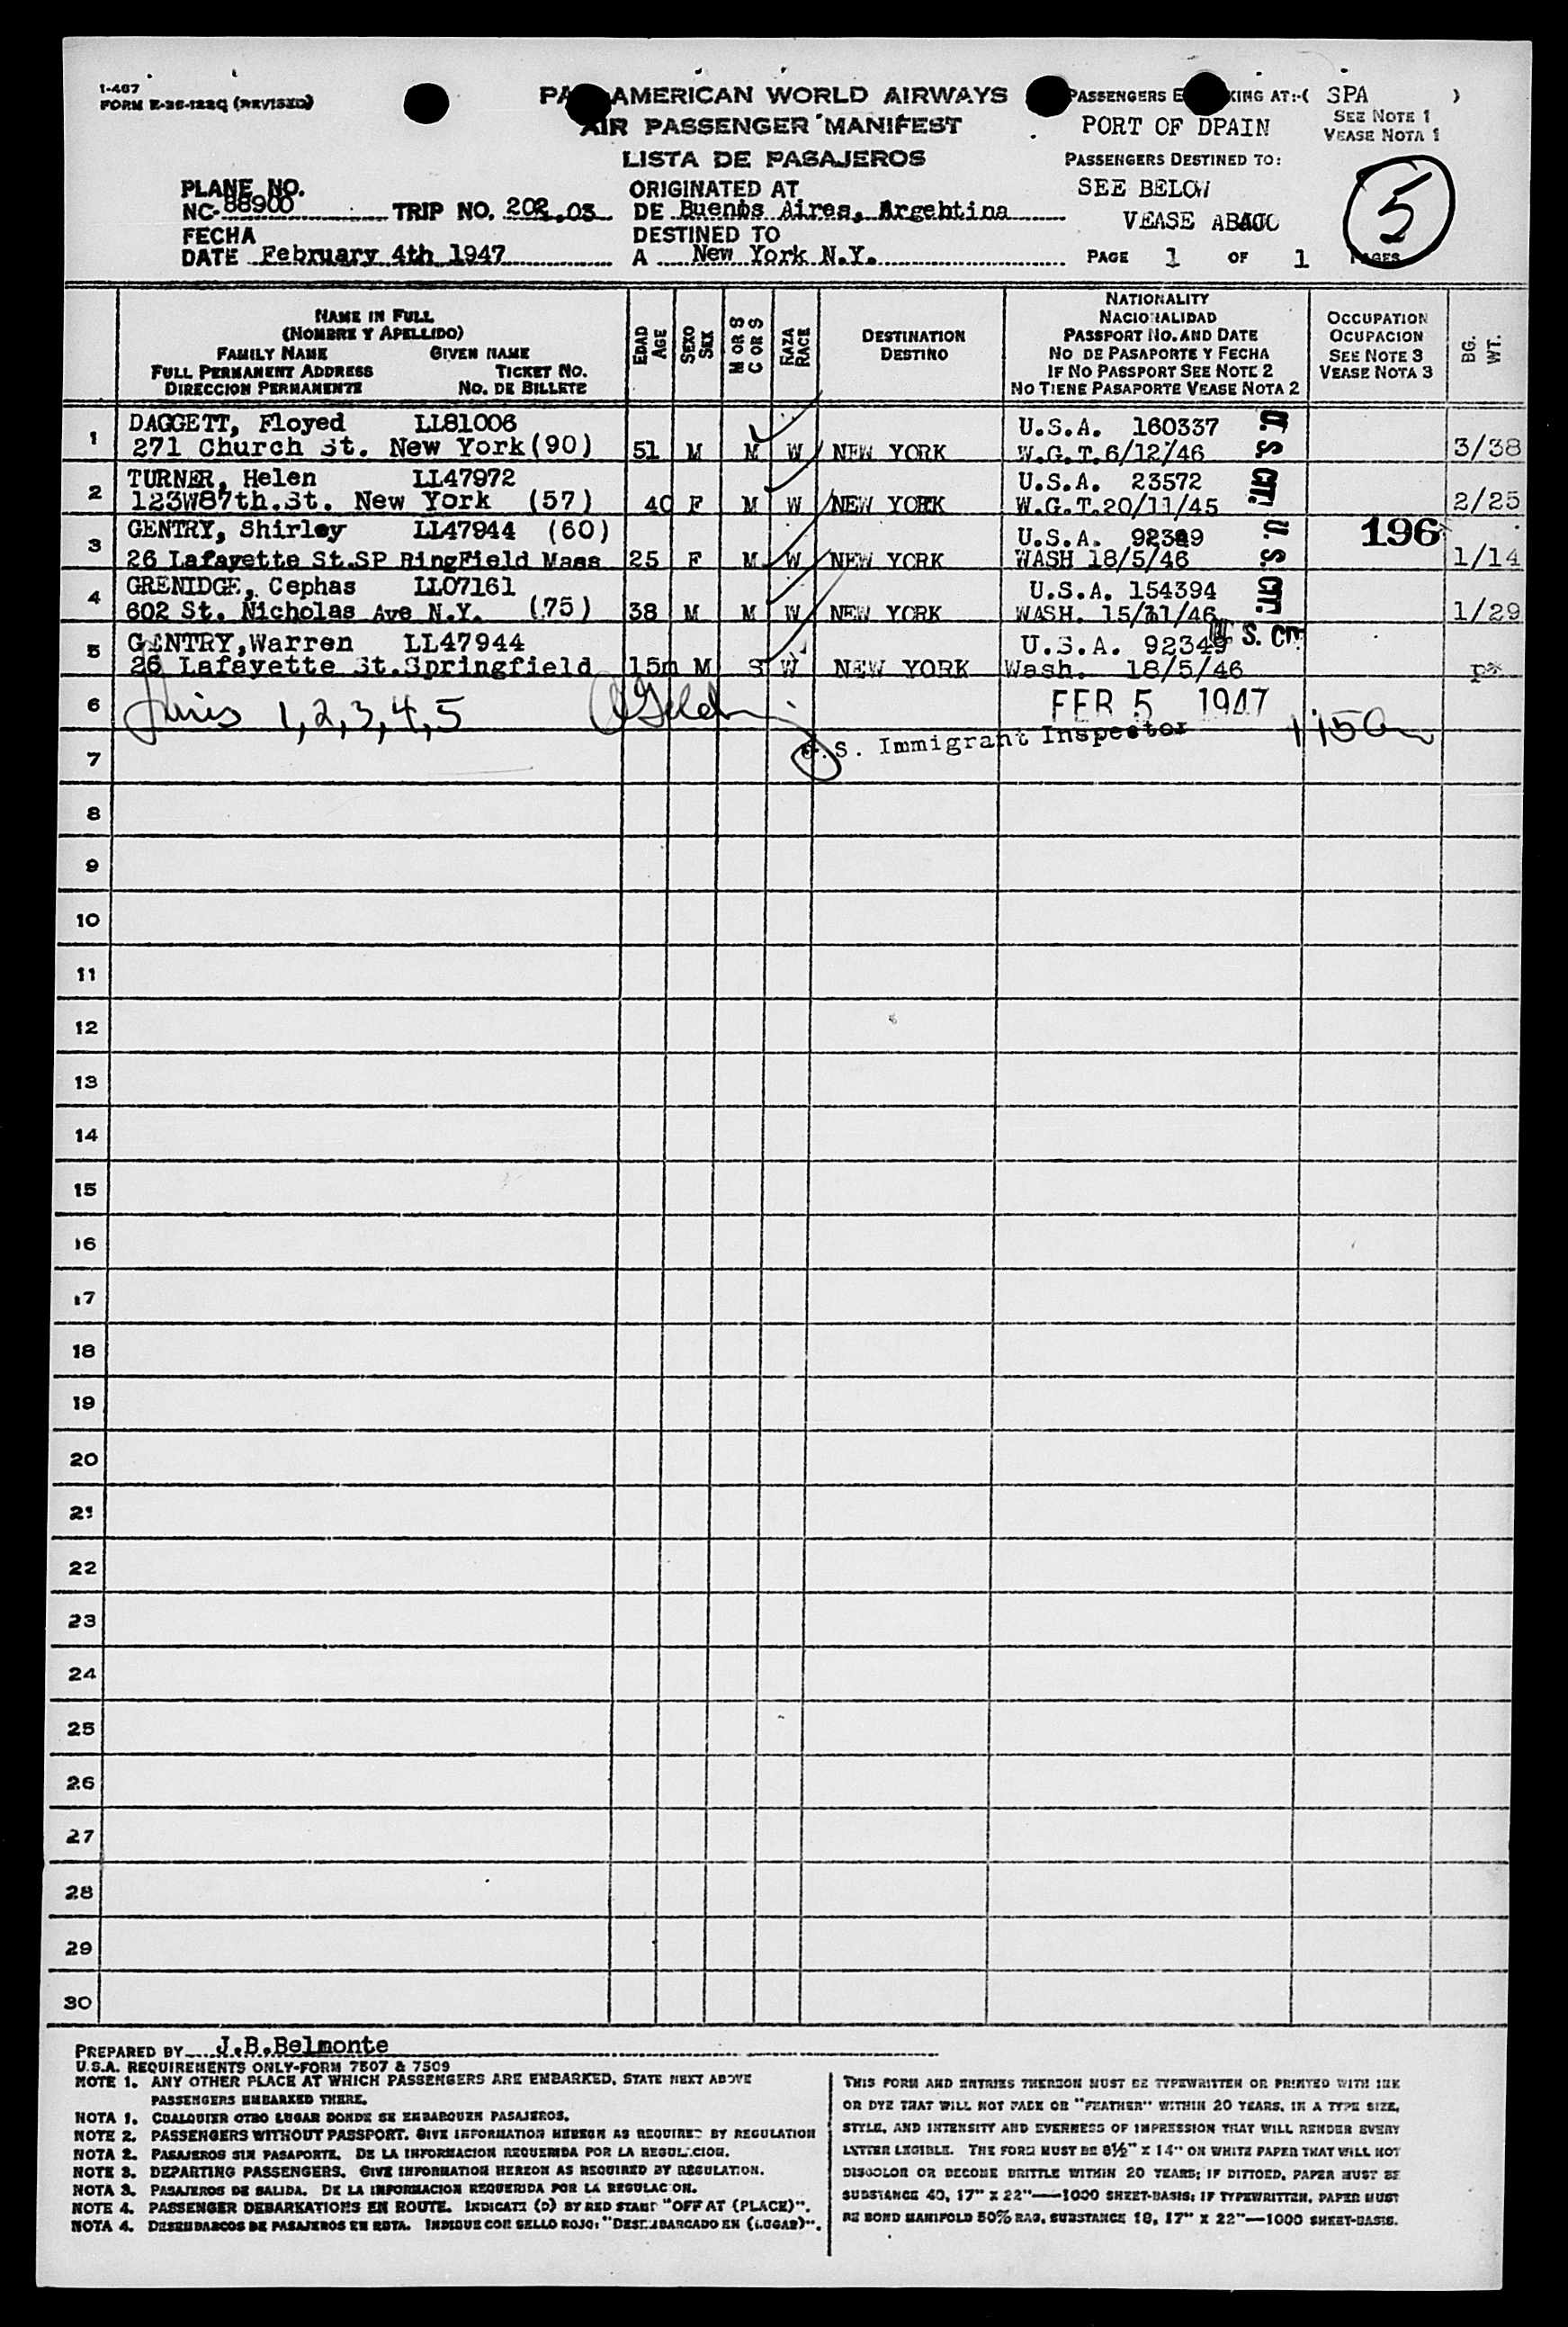 1-467
FORM E-36-122Q (REVISED)
PA AMERICAN WORLD AIRWAYS
AIR PASSENGER MANIFEST
LISTA DE PASAJEROS
PASSENGERS E KING AT:-( SPA )
PORT OF DPAIN
SEE NOTE 1
VEASE NOTA 1
PASSENGERS DESTINED TO:
SEE BELOW
VEASE ABAJO
5
PLANE NO.
NC-88900 TRIP NO. 202.03
FECHA
DATE February 4th 1947
ORIGINATED AT
DE Buenos Aires, Argehtina
DESTINED TO
A New York N.Y.
PAGE 1 OF 1 PAGES
NAME IN FULL
(NOMBRE Y APELLIDO)
FAMILY NAME GIVEN NAME
FULL PERMANENT ADDRESS TICKET NO.
DIRECCION PERMANENTE NO. DE BILLETE
EDAD AGE
SEXO SEX
M OR S
C OR S
RAZA RACE
DESTINATION
DESTINO
NATIONALITY
NACIONALIDAD
PASSPORT NO. AND DATE
NO DE PASAPORTE Y FECHA
IF NO PASSPORT SEE NOTE 2
NO TIENE PASAPORTE VEASE NOTA 2
OCCUPATION
OCUPACION
SEE NOTE 3
VEASE NOTA 3
BG. WT.
1 DAGGETT, Floyed LL81006 U.S.A. 160337
271 Church St. New York (90) 51 M M W NEW YORK W.G.T. 6/12/46 3/38
U.S CIT.
2 TURNER, Helen LL47972 U.S.A. 23572
123W87th.St. New York (57) 40 F M W NEW YORK W.G.T. 20/11/45 2/25
3 GENTRY, Shirley LL47944 (60) U.S.A. 92349 196
26 Lafayette St.SP RingField Mass 25 F M W NEW YORK WASH 18/5/46 1/14
U.S. CIT.
4 GRENIDGE, Cephas LL07161 U.S.A. 154394
602 St. Nicholas Ave N.Y. (75) 38 M M W NEW YORK WASH. 15/11/46 1/29
5 GENTRY, Warren LL47944 U.S.A. 92349 U.S. CIT
26 Lafayette St.Springfield 15m M S W NEW YORK Wash. 18/5/46
6 Lines 1,2,3,4,5 FEB 5 1947
U.S. Immigrant Inspector
7
8
9
10
11
12
13
14
15
16
17
18
19
20
21
22
23
24
25
26
27
28
29
30
PREPARED BY J.B.Belmonte
U.S.A. REQUIREMENTS ONLY-FORM 7507 & 7509
NOTE 1. ANY OTHER PLACE AT WHICH PASSENGERS ARE EMBARKED, STATE NEXT ABOVE
PASSENGERS EMBARKED THERE.
NOTA 1. CUALQUIER OTRO LUGAR DONDE SE EMBARQUEN PASAJEROS.
NOTE 2. PASSENGERS WITHOUT PASSPORT. GIVE INFORMATION HEREON AS REQUIRED BY REGULATION
NOTA 2. PASAJEROS SIN PASAPORTE. DE LA INFORMACION REQUERIDA POR LA REGULACION.
NOTE 3. DEPARTING PASSENGERS. GIVE INFORMATION HEREON AS REQUIRED BY REGULATION.
NOTA 3. PASAJEROS DE SALIDA. DE LA INFORMACION REQUERIDA POR LA REGULACION.
NOTE 4. PASSENGER DEBARKATIONS EN ROUTE. INDICATE (D) BY RED STAMP "OFF AT (PLACE)".
NOTA 4. DESEMBARCOS DE PASAJEROS EN RUTA. INDIQUE CON SELLO ROJO: "DESEMBARCADO EN (LUGAR)".
THIS FORM AND ENTRIES THEREON MUST BE TYPEWRITTEN OR PRINTED WITH INK
OR DYE THAT WILL NOT FADE OR "FEATHER" WITHIN 20 YEARS, IN A TYPE SIZE,
STYLE, AND INTENSITY AND EVENNESS OF IMPRESSION THAT WILL RENDER EVERY
LETTER LEGIBLE. THE FORM MUST BE 8½" X 14" ON WHITE PAPER THAT WILL NOT
DISCOLOR OR BECOME BRITTLE WITHIN 20 YEARS; IF DITTOED, PAPER MUST BE
SUBSTANCE 40, 17" X 22"—1000 SHEET-BASIS; IF TYPEWRITTEN, PAPER MUST
BE BOND MANIFOLD 50% RAG, SUBSTANCE 18, 17" X 22"—1000 SHEET-BASIS.